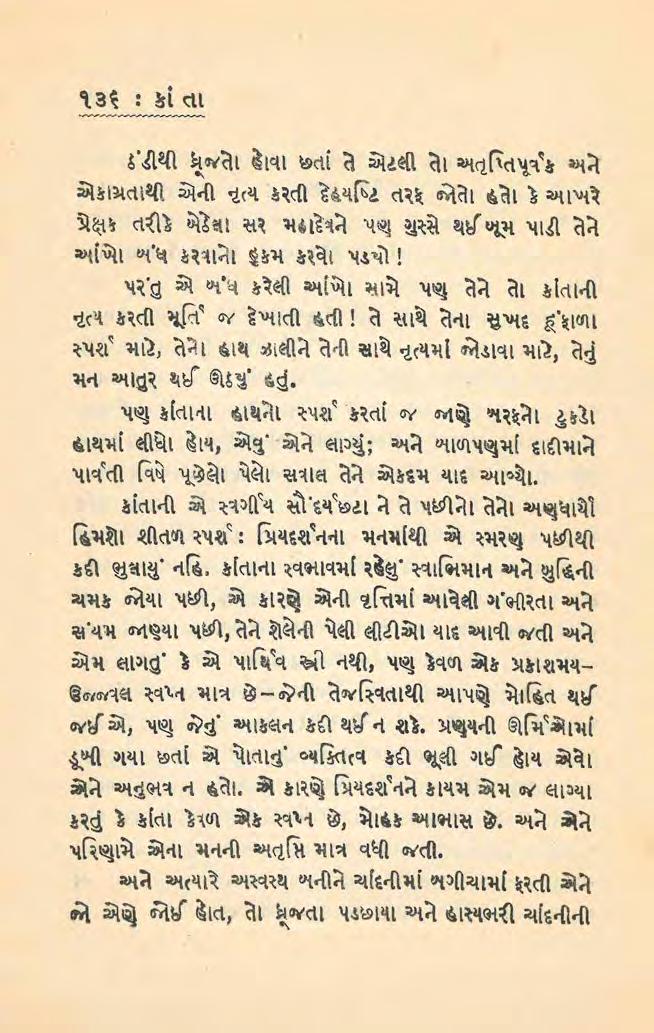 ૧૩૬ : કાં તા
ઠંડીથી ધ્રૂજતો હોવા છતાં તે એટલી તો અતૃપ્તિપૂર્વક અને
એકાગ્રતાથી એની નૃત્ય કરતી દેહયષ્ટિ તરફ જોતો હતો કે આખરે
પ્રેક્ષક તરીકે બેઠેલા સર મહાદેવને પણ ગુસ્સે થઈ બૂમ પાડી તેને
આંખો બંધ કરવાનો હુકમ કરવો પડ્યો !
પરંતુ એ બંધ કરેલી આંખો સામે પણ તેને તો કાંતાની
નૃત્ય કરતી મૂર્તિ જ દેખાતી હતી ! તે સાથે તેના સુખદ હૂંફાળા
સ્પર્શ માટે, તેનો હાથ ઝાલીને તેની સાથે નૃત્યમાં જોડાવા માટે, તેનું
મન આતુર થઈ ઊઠ્યું હતું.
પણ કાંતાના હાથનો સ્પર્શ કરતાં જ જાણે બરફનો ટુકડો
હાથમાં લીધો હોય, એવું એને લાગ્યું; અને બાળપણમાં દાદીમાને
પાર્વતી વિષે પૂછેલો પેલો સવાલ તેને એકદમ યાદ આવ્યો.
કાંતાની એ સ્વર્ગીય સૌંદર્યછટા ને તે પછીનો તેનો અણધાર્યો
હિમશો શીતળ સ્પર્શ : પ્રિયદર્શનના મનમાંથી એ સ્મરણ પછીથી
કદી ભુલાયું નહિ. કાંતાના સ્વભાવમાં રહેલું સ્વાભિમાન અને બુદ્ધિની
ચમક જોયા પછી, એ કારણે એની વૃત્તિમાં આવેલી ગંભીરતા અને
સંયમ જાણ્યા પછી, તેને શેલેની પેલી લીટીઓ યાદ આવી જતી અને
એમ લાગતું કે એ પાર્થિવ સ્ત્રી નથી, પણ કેવળ એક પ્રકાશમય–
ઉજ્જ્વલ સ્વપ્ન માત્ર છે–જેની તેજસ્વિતાથી આપણે મોહિત થઈ
જઈએ, પણ જેનું આકલન કદી થઈ ન શકે. પ્રણયની ઊર્મિઓમાં
ડૂબી ગયા છતાં એ પોતાનું વ્યક્તિત્વ કદી ભૂલી ગઈ હોય એવો
એને અનુભવ ન હતો. એ કારણે પ્રિયદર્શનને કાયમ એમ જ લાગ્યા
કરતું કે કાંતા કેવળ એક સ્વપ્ન છે, મોહક આભાસ છે. અને એને
પરિણામે એના મનની અતૃપ્તિ માત્ર વધી જતી.
અને અત્યારે અસ્વસ્થ બનીને ચાંદનીમાં બગીચામાં ફરતી એને
જો એણે જોઈ હોત, તો ધ્રૂજતા પડછાયા અને હાસ્યભરી ચાંદનીની